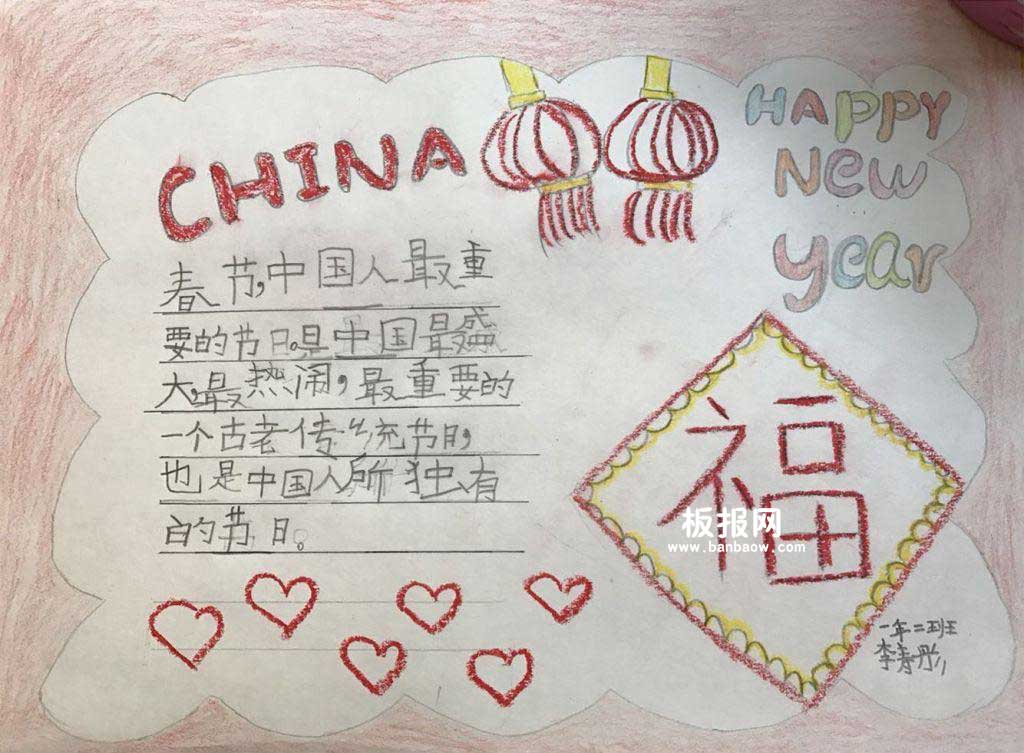 CHINA
HAPPY
New
year
春节,中国人最重
要的节日。是中国最盛
大,最热闹,最重要的
一个古老传统节日,
也是中国人所独有
的节日。
福
板报网
www.banbaow.com
一年二班